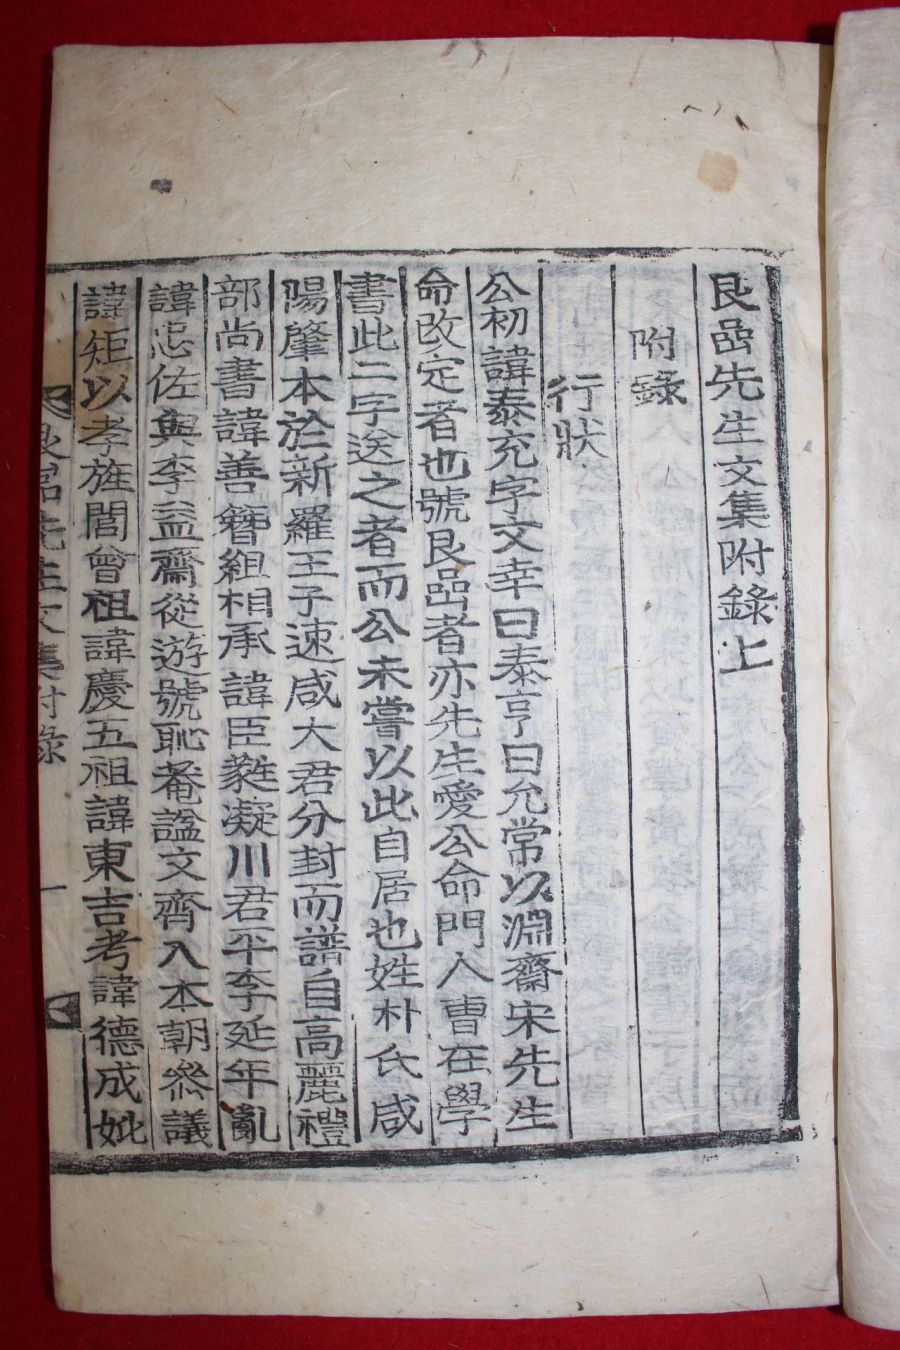 艮嵒先生文集附錄上
附錄
行狀
公初諱泰充字文幸曰泰亨曰允常以淵齋宋先生
命改定者也號艮嵒者亦先生愛公命門人曺在學
書此二字送之者而公未嘗以此自居也姓朴氏咸
陽肇本於新羅王子速咸大君分封而譜自高麗禮
部尚書諱善簪組相承諱臣蕤凝川君平李延年亂
諱忠佐與李益齋從遊號恥菴諡文齊入本朝參議
諱矩以孝旌閭曾祖諱慶五祖諱東吉考諱德成妣
艮嵒先生文集附錄
一